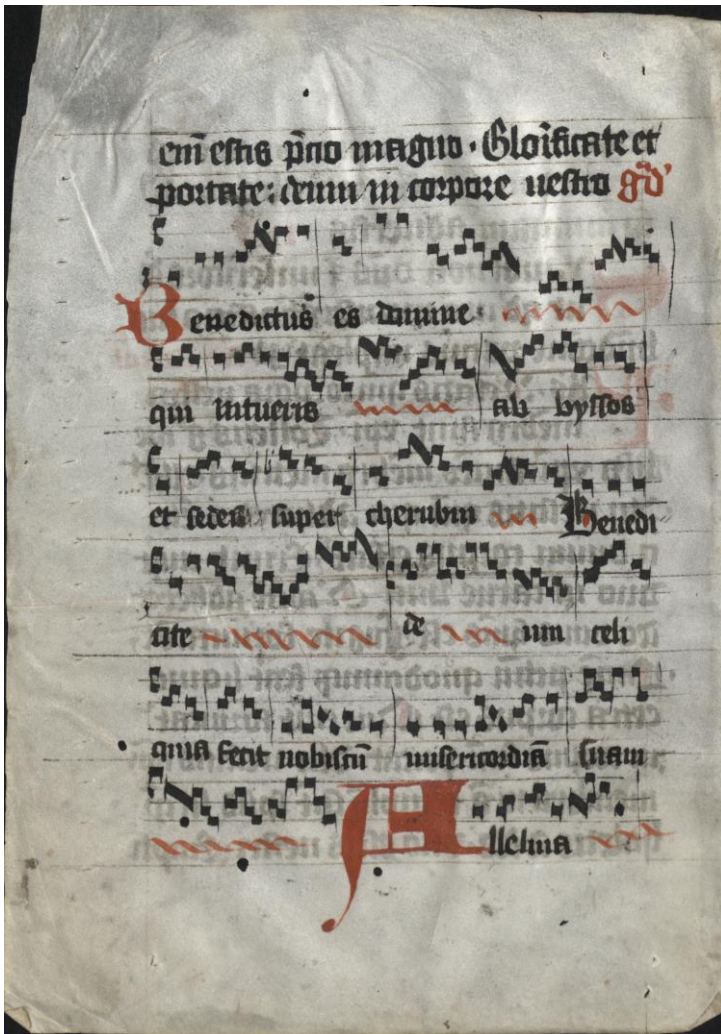 em̄ estis p̄cio magno · Glorificate et
portate: deum in corpore uestro gͣd̾
Benedictus es domine
qui intueris ab byssos
et sedes super cherubin Benedi
cite de um celi
quia fecit nobiscū misericordiā suam
Alleluia